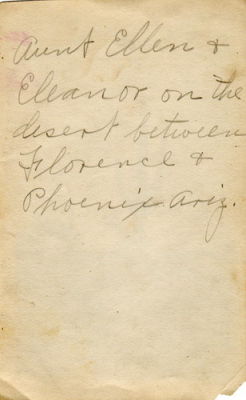 Aunt Ellen &
Eleanor on the
desert between
Florence &
Phoenix Ariz.